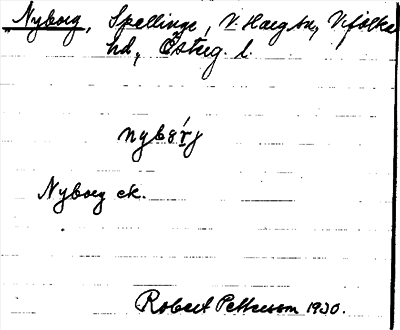 Nyborg, Spellinge, V. Harg sn, Vifolka
hd, Österg. l.
Nyborg ek.
Robert Pettersson 1930.